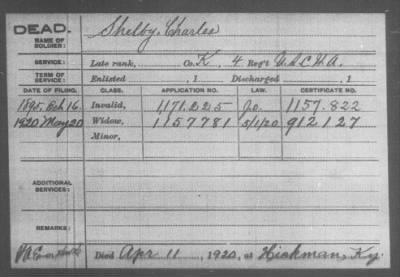 DEAD.
NAME OF SOLDIER: Shelby, Charles
SERVICE: Late rank, Co. K, 4 Reg't U.S.C.H.A.
TERM OF SERVICE: Enlisted , 1 Discharged , 1
DATE OF FILING. CLASS. APPLICATION NO. LAW. CERTIFICATE NO.
1895, Feb 16. Invalid, 1,171,225 1157.822
1920 May 20 Widow, 1157781 5/1/20 912127
Minor,
ADDITIONAL SERVICES:
REMARKS:
Died Apr 11, 1920, at Hickman, Ky.